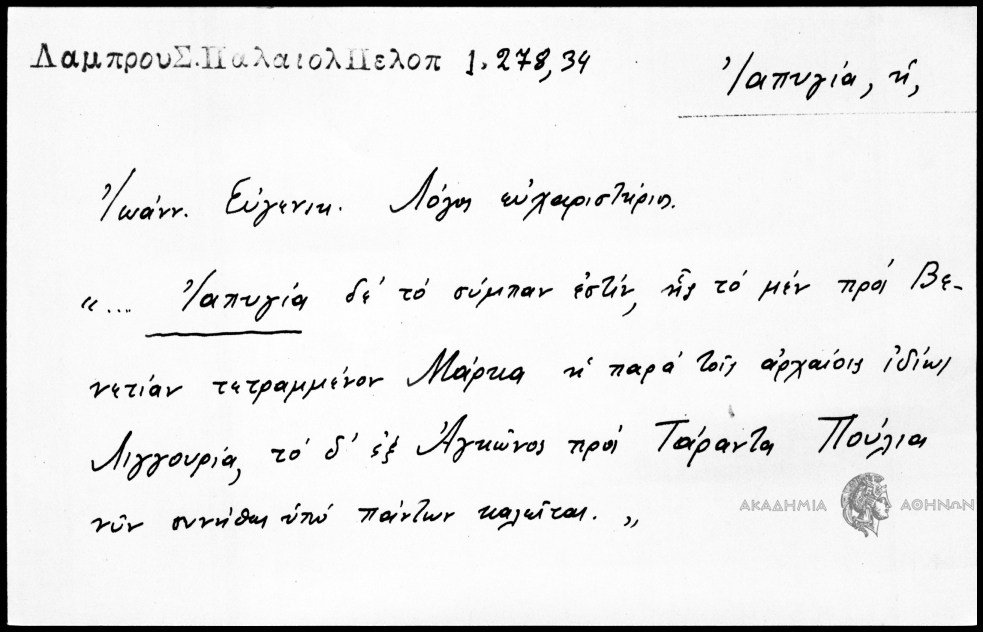 ΛαμπρουΣ.ΠαλαιολΠελοπ 1.278,34
Ἰαπυγία, ἡ,
Ἰωάνν. Εὐγενικ. Λόγος εὐχαριστήριος.
"... Ἰαπυγία δὲ τὸ σύμπαν ἐστίν, ἧς τὸ μὲν πρὸς Βε-
νετίαν τετραμμένον Μάρκα ἡ παρὰ τοῖς ἀρχαίοις ἰδίως
Λιγγουρία, τὸ δ' ἐξ Ἀγκῶνος πρὸς Τάραντα Πούλια
νῦν συνήθως ὑπὸ πάντων καλεῖται."
ΑΚΑΔΗΜΙΑ ΑΘΗΝΩΝ